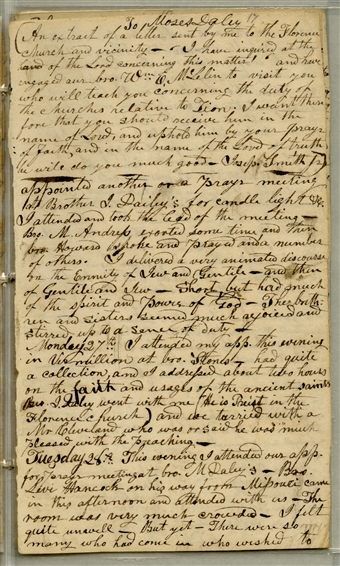 To Moses Daley 17
An extract of a letter sent by me to the Florence
Church and vicinity — I have inquired at the
hand of the Lord concerning this matter! and have
engaged our bro. Wm E. McLelin to visit you
who will teach you concerning the duty of
the churches relative to Zion, I want there
fore that you should receive him in the
name of Lord, and uphold him by your prayrs
of faith, and in the name of the Lord of truth
he will do you much good — Joseph Smith Jr
appointed another or a prayr meeting
at Brother I. Dailey's for candle light
I attended and took the lead of the meeting —
Bro. M. Andress exorted some time and then
bro. Howard spoke and prayed and a number
of others. I delivered a very animated discourse
on the Enmity of Jew and Gentile — and then
of Gentile and Jew — Short but had much
of the spirit and power of God — The breth
ren and sisters seemed much rejoiced and
stirred up to a sence of duty —
Monday 27th I attended my app. this evening
in Vermillion at bro. Stones — had quite
a collection, and I addressed about two hours
on the faith and usages of the ancient saints
bro I. Daley went with me (He is Priest in the
Florence church) and we tarried with a
Mr Cleveland who was or said he was much
pleased with the preaching —
Tuesday 28th This evening I attended our app.
for prayr meeting at bro. M Daley's — Bro.
Levi Hancock on his way from Missouri came
in this afternoon and attended with us — The
room was very much crowded — I felt
quite unwell — But yet — There were so
many who had come in who wished to